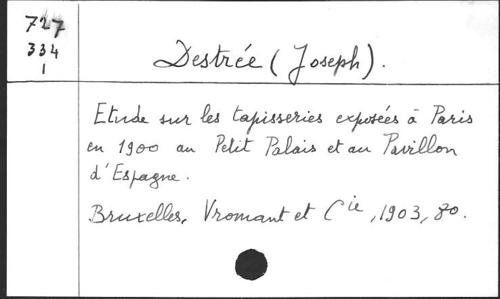 727
334
1
Destrée (Joseph).
Etude sur les tapisseries exposées à Paris
en 1900 au Petit Palais et au Pavillon
d'Espagne.
Bruxelles, Vromant et Cie, 1903, 8o.